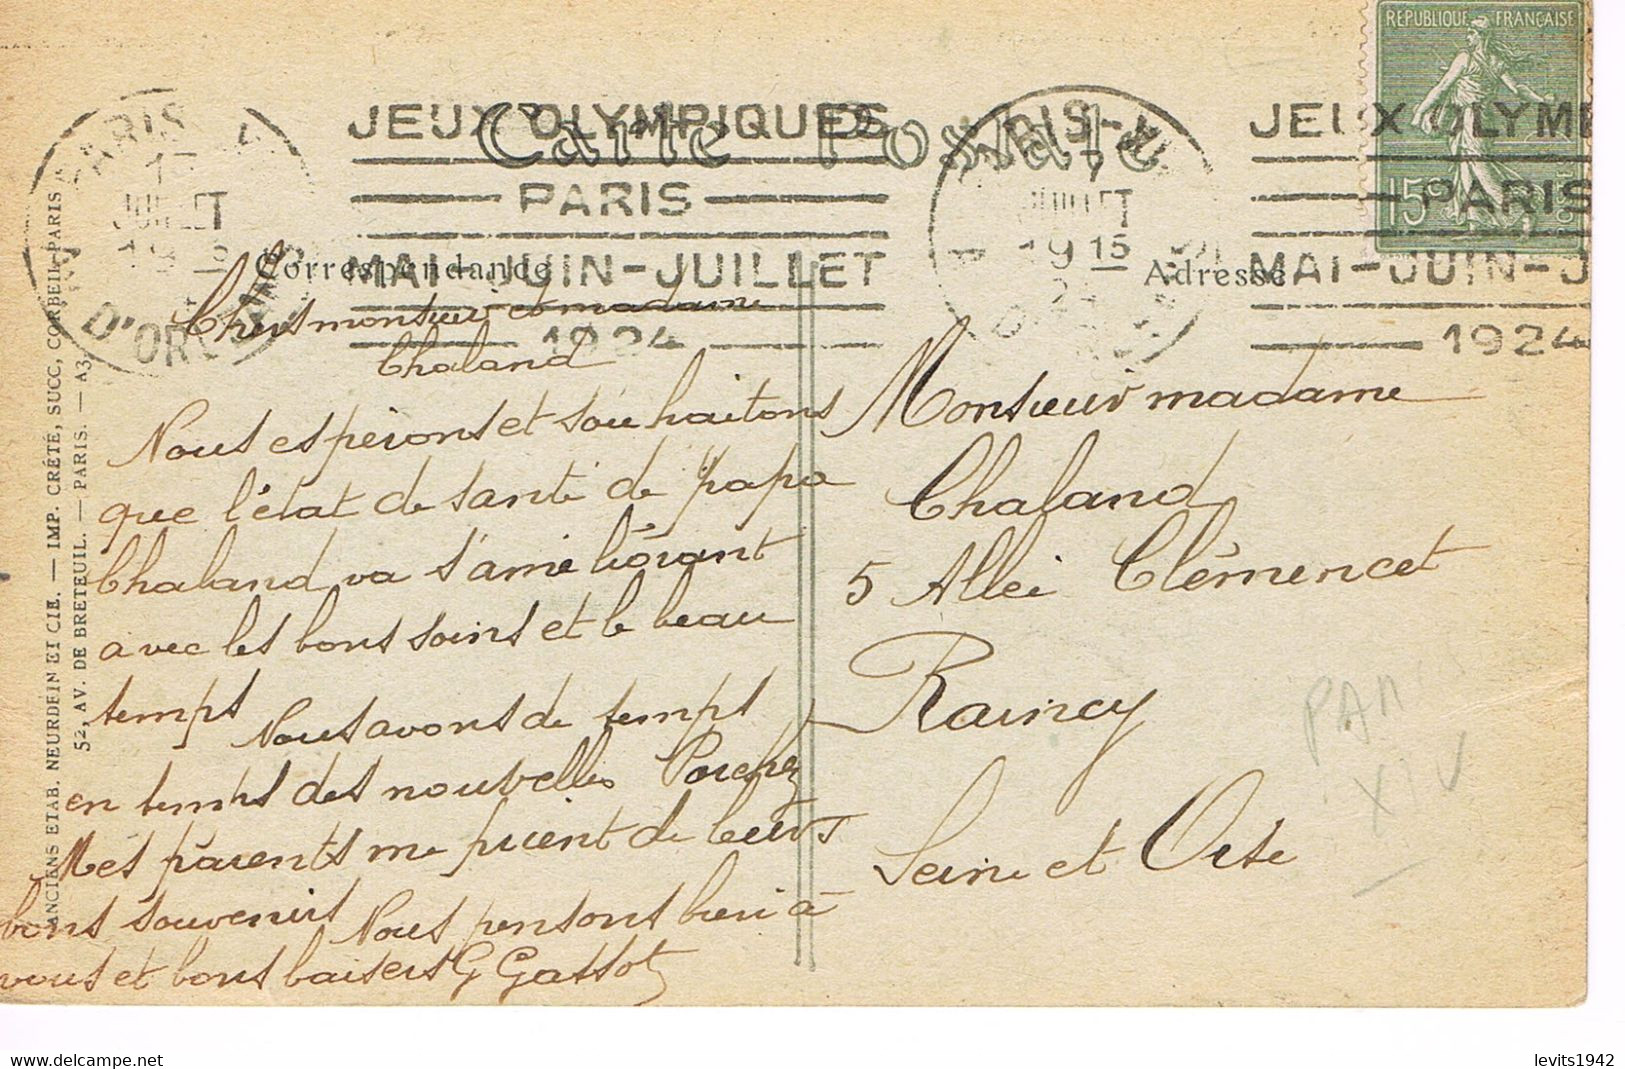 RÉPUBLIQUE FRANÇAISE
15c
JEUX OLYMPIQUES
PARIS
MAI-JUIN-JUILLET
1924
JEUX OLYM
PARIS
MAI-JUIN-J
1924
PARIS
JUILLET
D'ORSAY
JUILLET
19 15
24
Carte Postale
Correspondance
Adresse
ANCIENS ETAB. NEURDEIN ET CIE. — IMP. CRÉTÉ, SUCC, CORBEIL-PARIS
52, AV. DE BRETEUIL. — PARIS. — A3.
Chers monsieur et madame
Chaland
Nous esperons et souhaitons
que l'état de santé de papa
Chaland va s'améliorant
avec les bons soins et le beau
temps Nous avons de temps
en temps des nouvelles
Mes parents me prient de leurs
bons souvenirs Nous pensons bien à
vous et bons baisers G Gassot
Monsieur madame
Chaland
5 Allée Clémencet
Raincy
Seine et Oise
PAR
XIV
levits1942